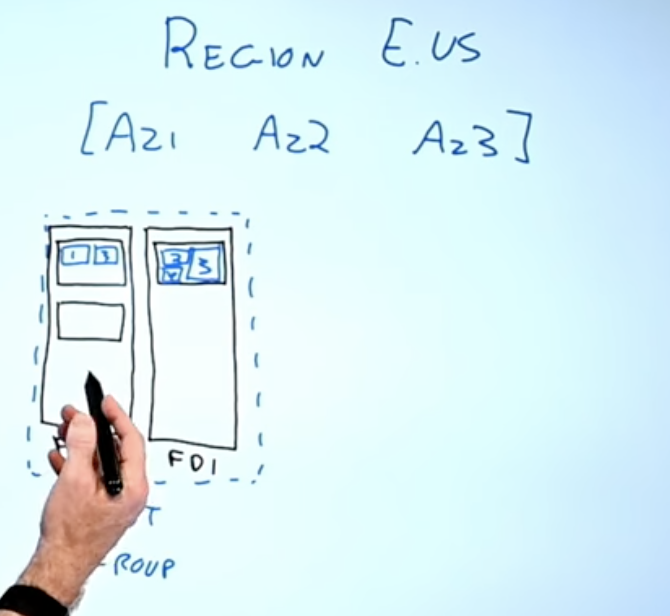 REGION E.US
[AZ1 AZ2 AZ3]
1 3
2 3
4
FD1
T
ROUP